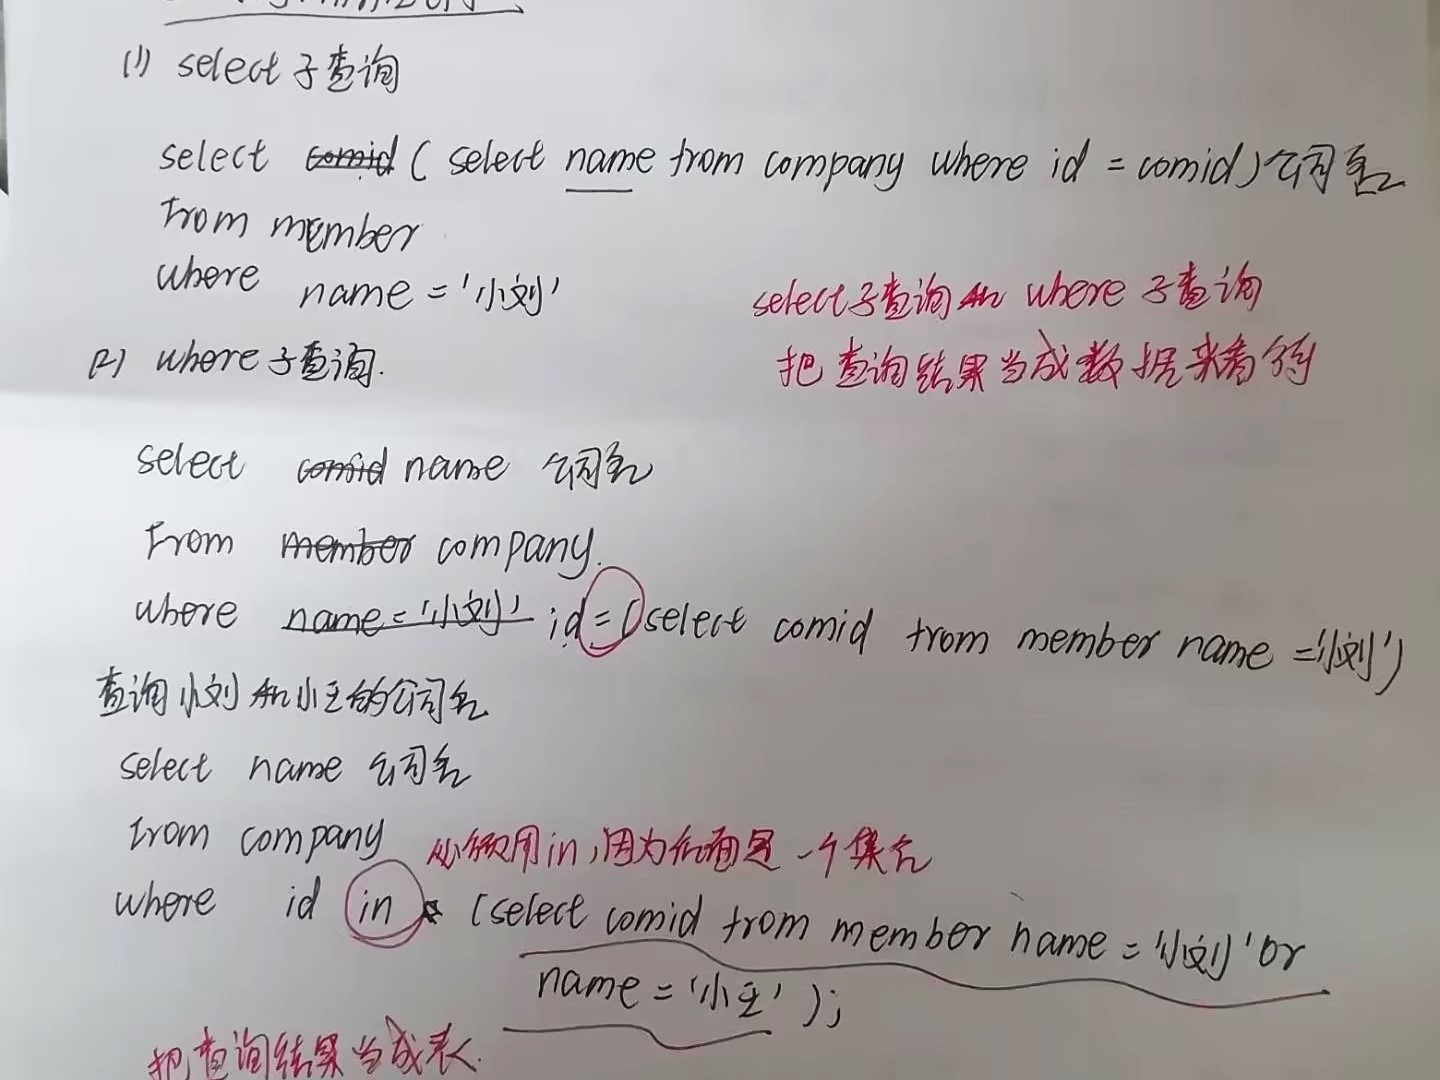 (1) select子查询
select comid ( select name from company where id = comid) 公司名
from member
where name = '小刘'
select子查询和 where 子查询
把查询结果当成数据来看待
(2) where子查询.
select comid name 公司名
from member company.
where name = '小刘' id = (select comid from member name = '小刘')
查询小刘和小王的公司名
select name 公司名
from company
必须用in,因为后面是一个集合
where id in (select comid from member name = '小刘' or
name = '小王' );
把查询结果当成表.